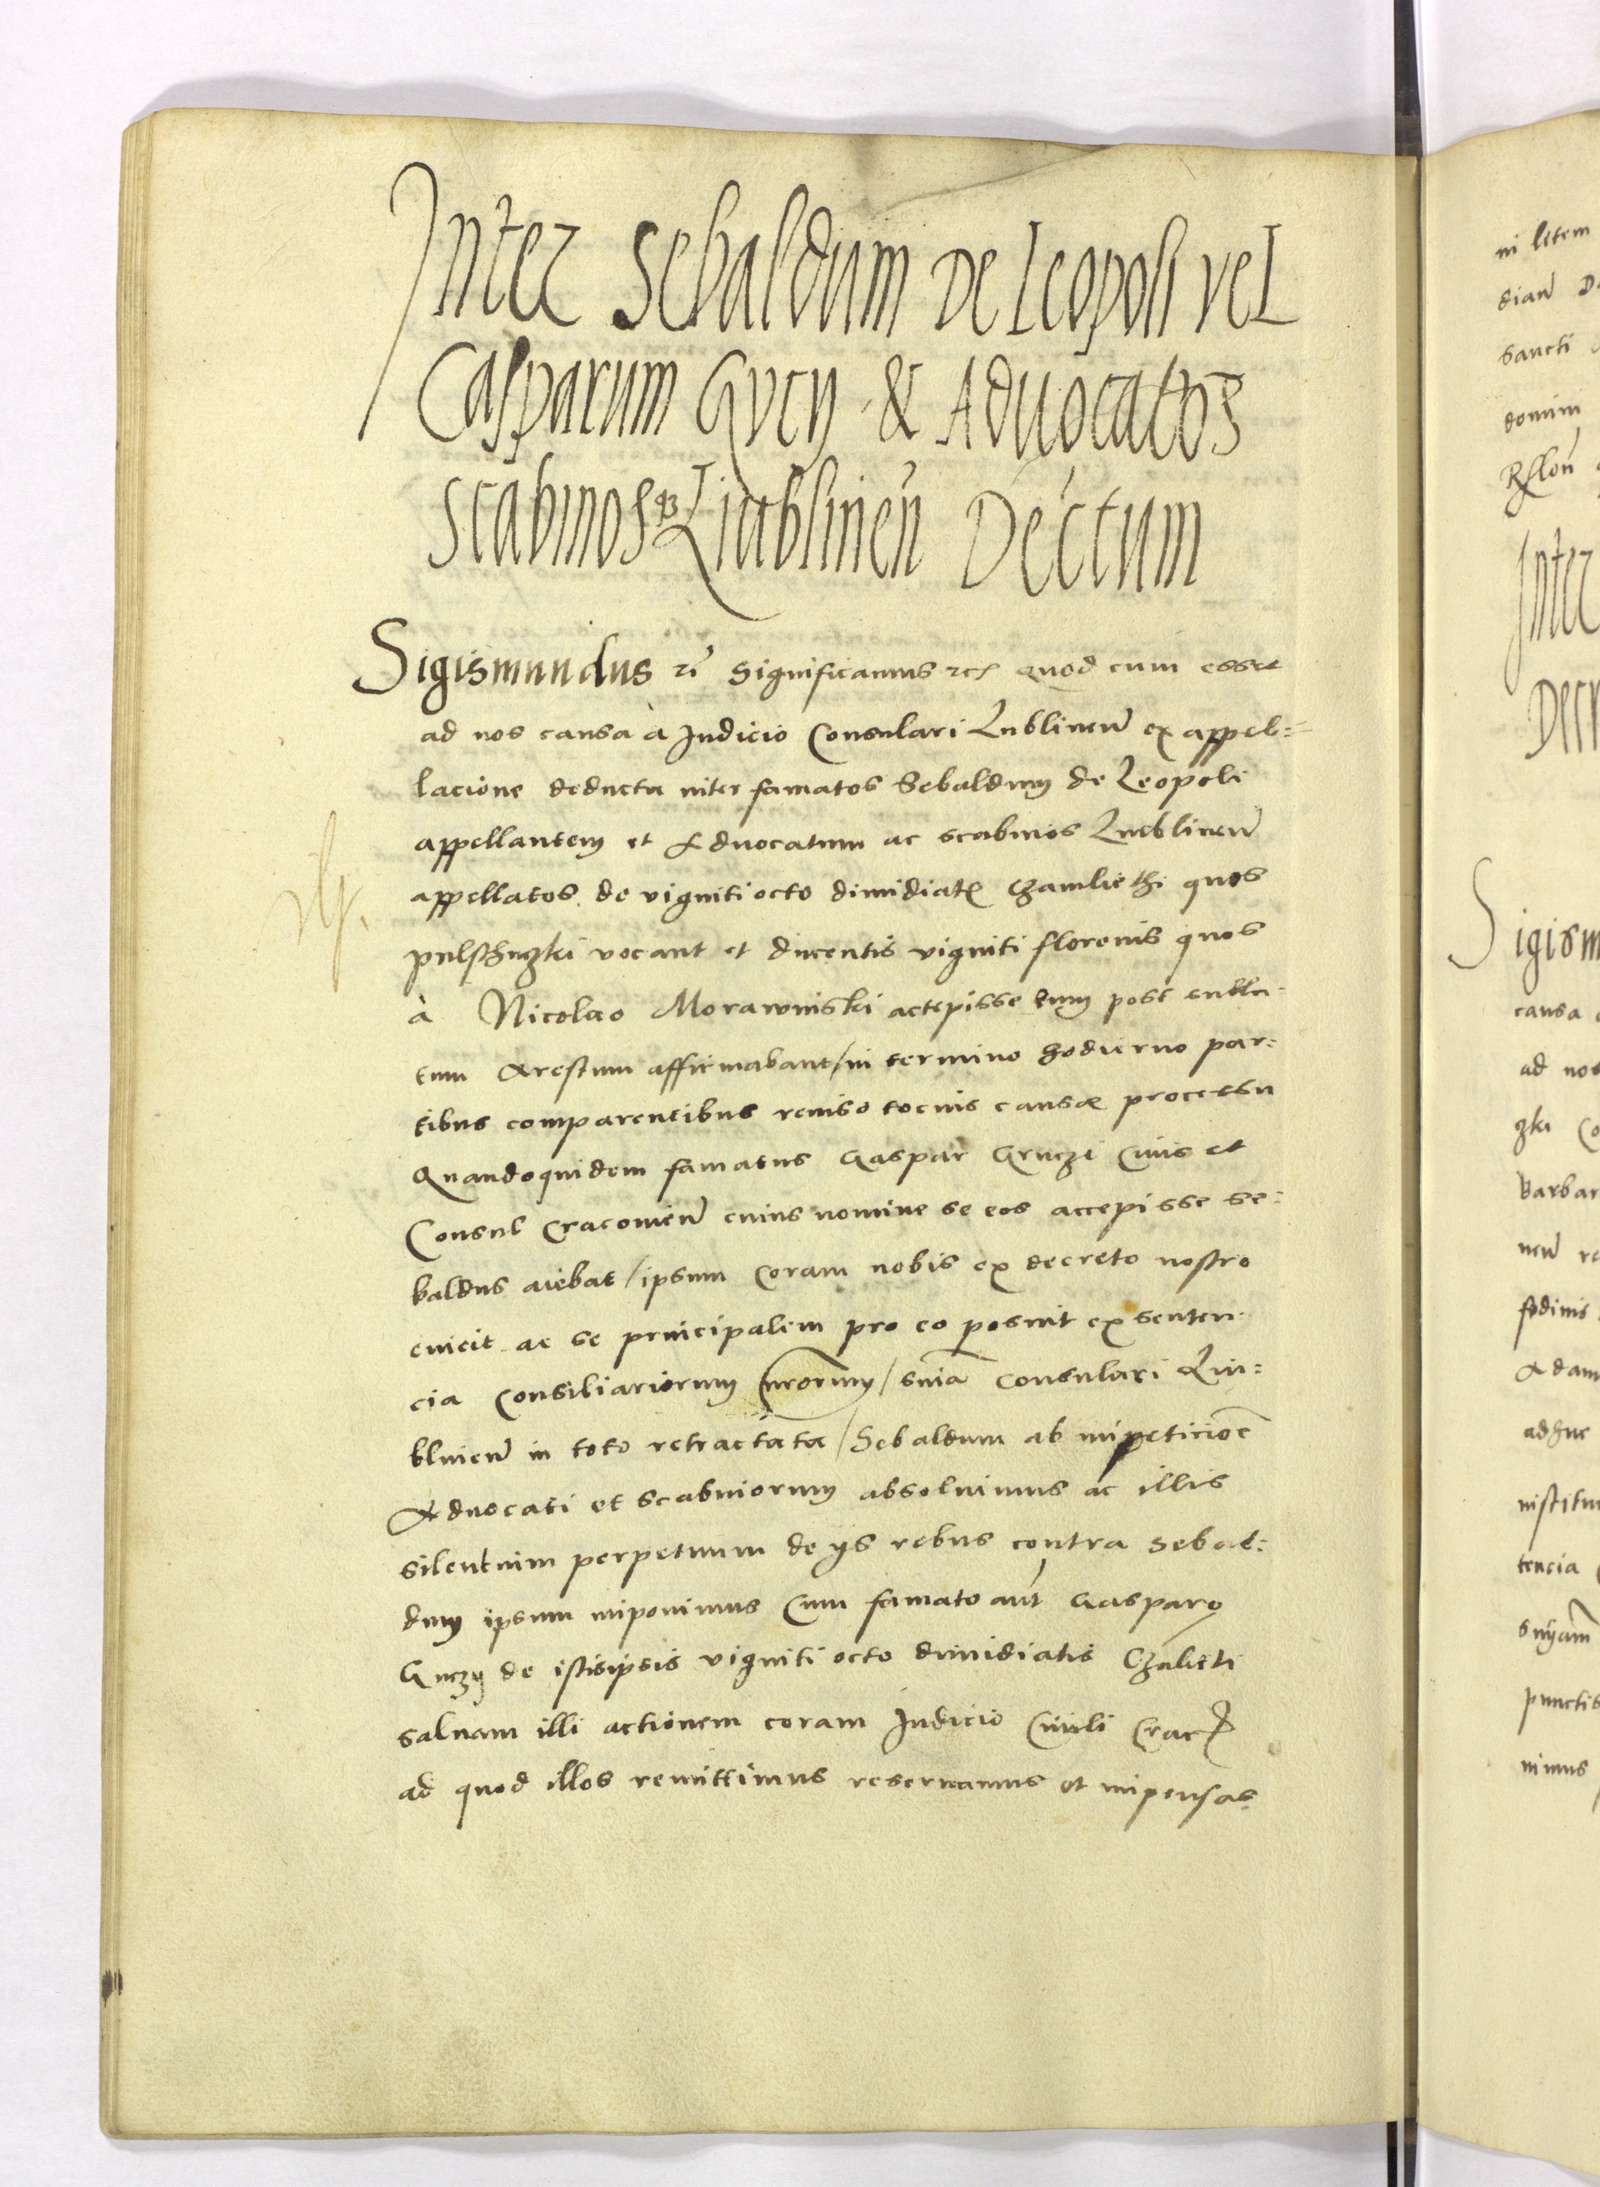 Inter Sebaldum De Leopoli vel
Casparum Gvcy & Aduocatos
Scabinosq Liublinen Dectum
Sigismundus rc Significamus rc quod cum esset
ad nos causa à Judicio Consulari Lublinen ex appel=
lacione deducta inter famatos Sebaldum de Leopoli
appellantem et Aduocatum ac scabinos Lueblinen
appellatos de viginti octo dimidiat Czamlethi quos
pulschuzki vocant et ducentis viginti florenis quos
à Nicolao Morawinski accepisse eum post
tum Arestum affirmabant / in termino hodierno par=
tibus comparentibus reuiso tocius causae processu
Quandoquidem famatus Gaspar Gruczi Ciuis et
Consul Cracouien cuius nomine se eos accepisse Se=
baldus aiebat / ipsum coram nobis ex decreto nostro
euicit ac se principalem pro eo posuit ex senten=
cia Consiliariorum nrorum / snia Consulari Liu=
blinen in toto retractata / Sebaldum ab impeticioe
Aduocati et scabinorum absoluimus ac illis
silentium perpetuum de ijs rebus contra Sebal=
dum ipsum imponimus Cum famato aut Gasparo
Guczy de istis ipsis viginti octo dimidiatis Czaleti
saluam illi actionem coram Judicio Ciuili Crac
ad quod illos remittimus reseruamus et impensas
in litem
sancti
domini
Inter
Decr
Sigism
causa
ad nos
zki Co
Barbar
fodinis
Adam
adhuc
institu
tencia
punctis
nimus